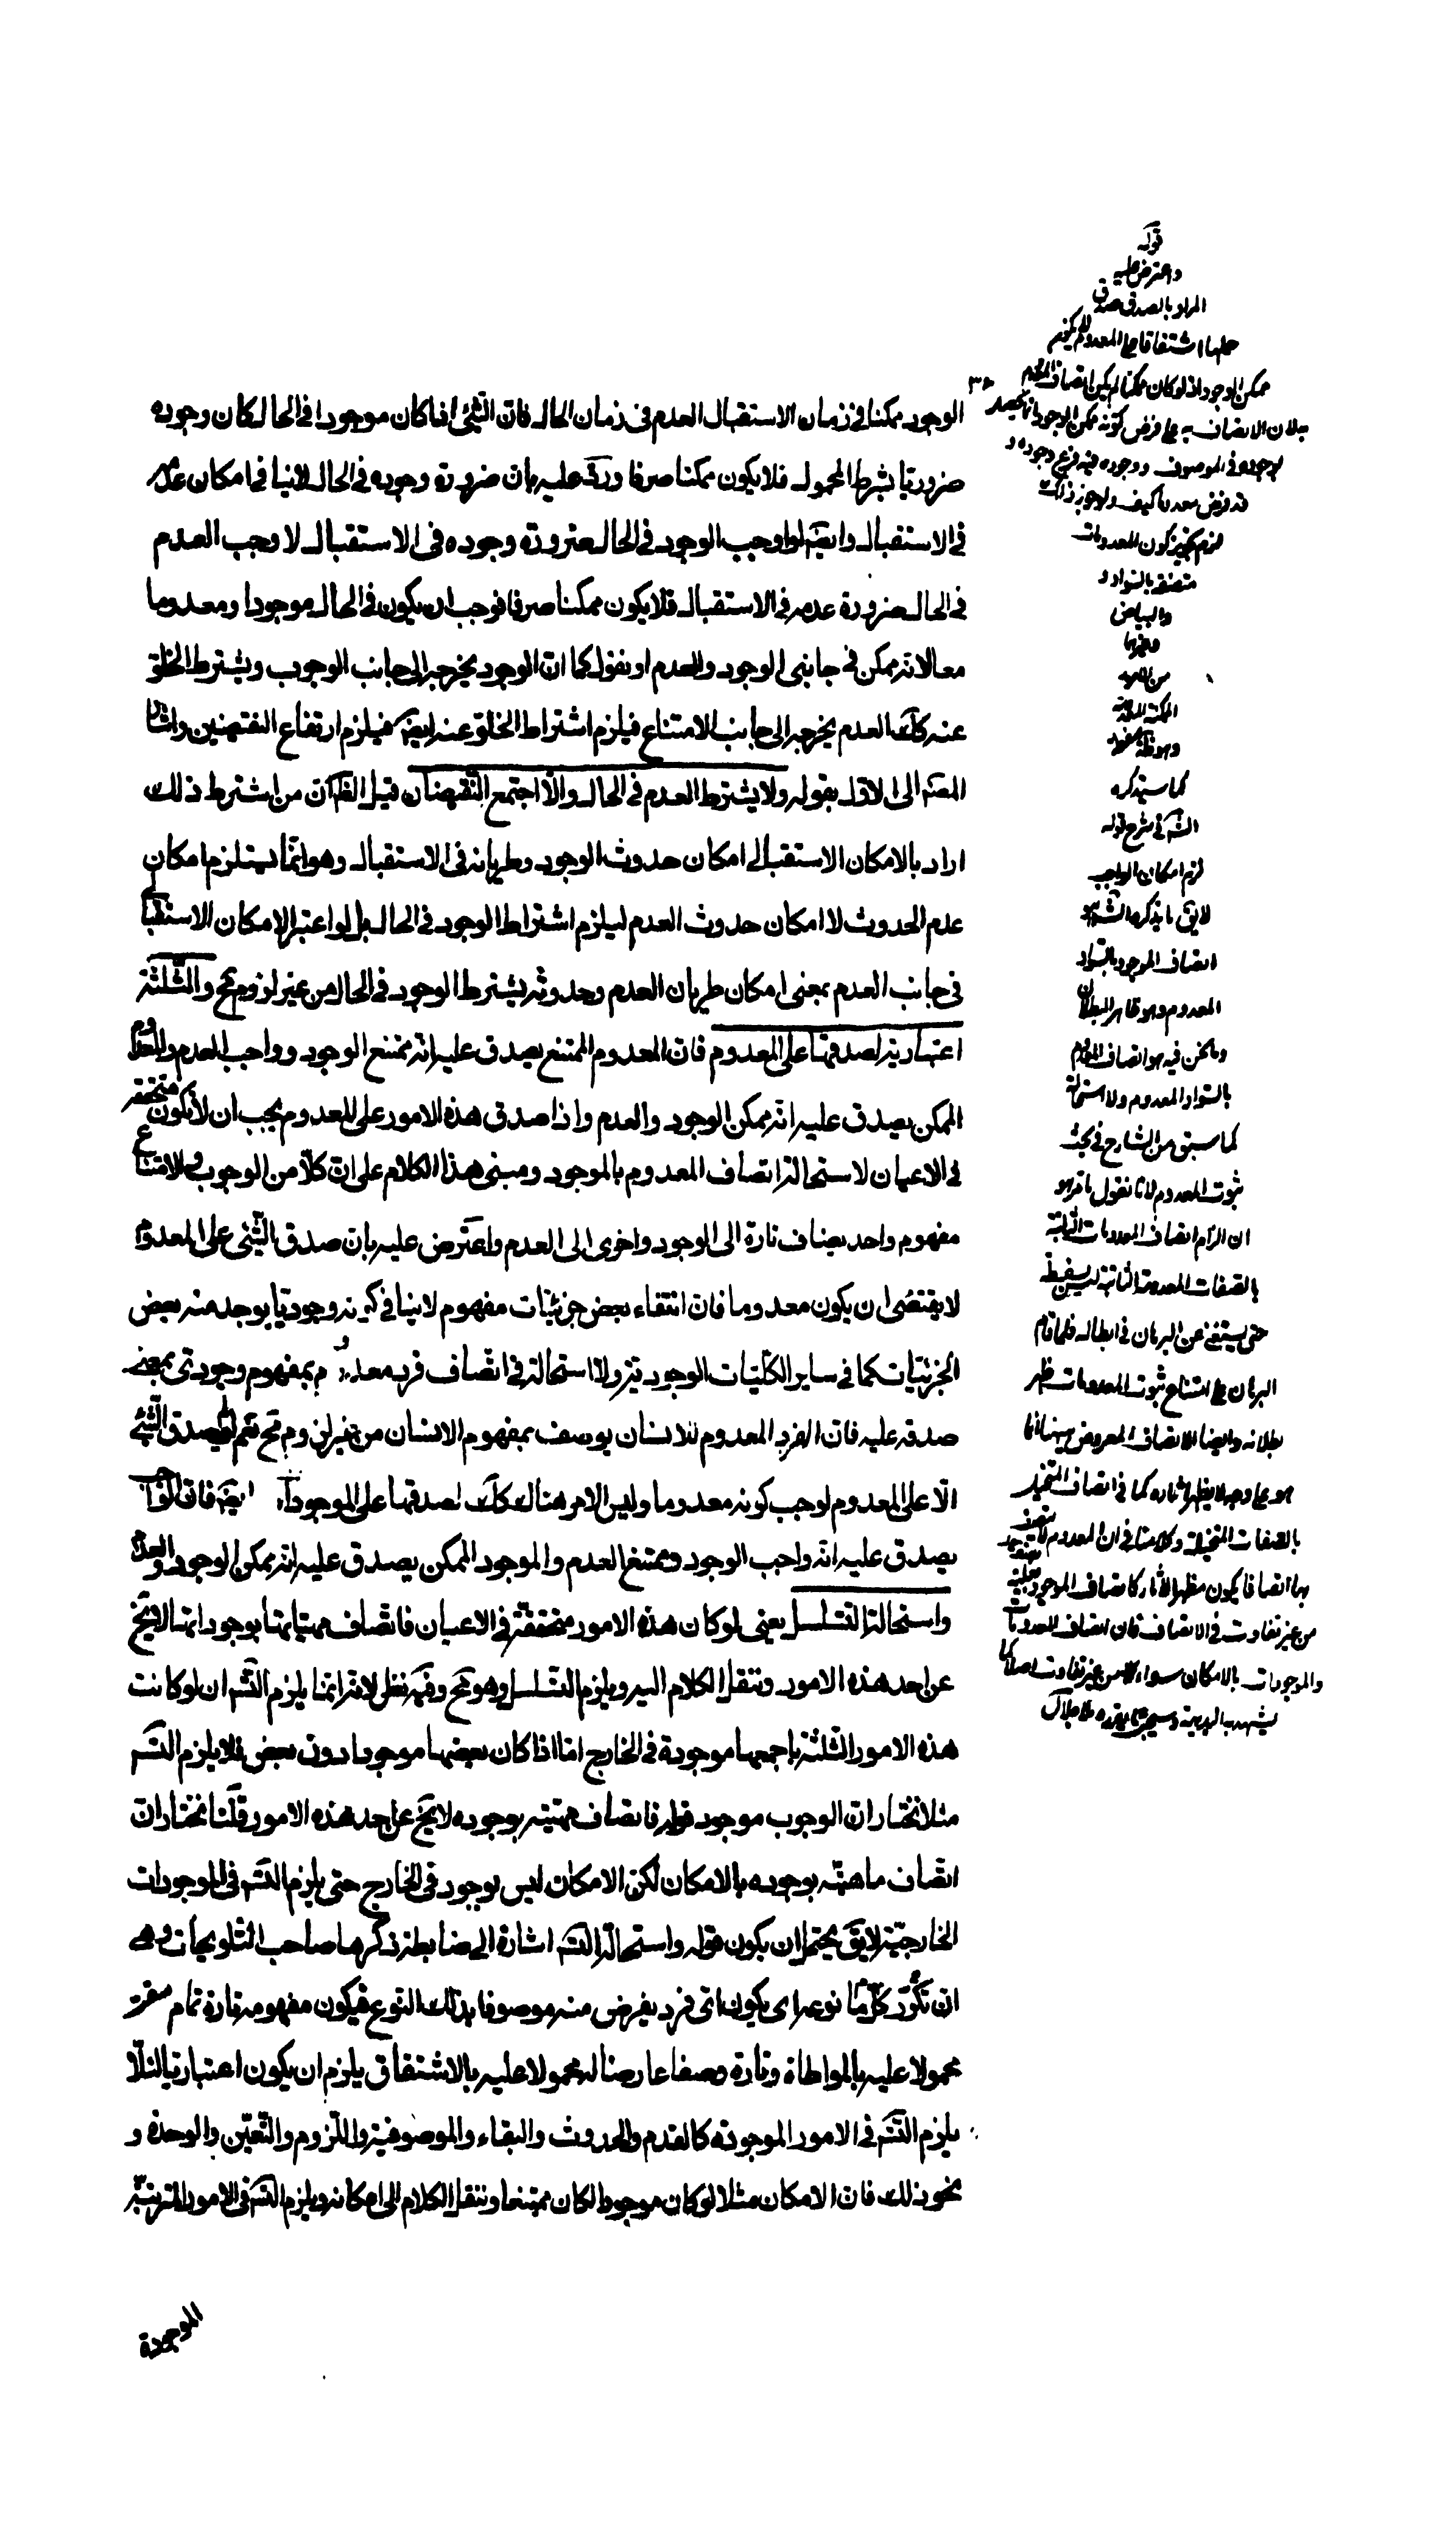 الوجود ممكنا في زمان الاستقبال العدم في زمان الحال فان الشئ اذا كان موجودا في الحال كان وجوده
ضروريا بشرط المحمول فلا يكون ممكنا صرفا ورد عليه بان ضرورة وجوده في الحال لا ينافي امكان عدمه
في الاستقبال وايضا لو اوجب الوجود في الحال ضرورة وجوده في الاستقبال لاوجب العدم
في الحال ضرورة عدمه في الاستقبال فلا يكون ممكنا صرفا فوجب ان يكون في الحال موجودا ومعدوما
معا لانه ممكن في جانبي الوجود والعدم او نقول كما ان الوجود يخرجه الى جانب الوجوب ويشترط الخلو
عنه كك العدم يخرجه الى جانب الامتناع فيلزم اشتراط الخلو عنه ايضا فيلزم ارتفاع النقيضين واشار
المصـ الى الاول بقوله ولا يشترط العدم في الحال والا اجتمع النقيضان قيل الظـ ان من اشترط ذلك
اراد بالامكان الاستقبالي امكان حدوث الوجود وطريانه في الاستقبال وهو انما يستلزم امكان
عدم الحدوث لا امكان حدوث العدم ليلزم اشتراط الوجود في الحال بل لو اعتبر الامكان الاستقبا
في جانب العدم بمعنى امكان طريان العدم وحدوثه يشترط الوجود في الحال من غير لزوم مح والثلثة
اعتبارية لصدقها على المعدوم فان المعدوم الممتنع يصدق عليه انه ممتنع الوجود وواجب العدم والمعدوم
الممكن يصدق عليه انه ممكن الوجود والعدم واذا صدق هذه الامور على المعدوم يجب ان لا يكون متحققة
في الاعيان لاستحالة اتصاف المعدوم بالموجود ومبنى هذا الكلام على ان كلا من الوجوب والامتناع
مفهوم واحد يضاف تارة الى الوجود واخرى الى العدم واعترض عليه بان صدق الشئ على المعدوم
لا يقتضي ان يكون معدوما فان انتفاء بعض جزئيات مفهوم لا ينافي كونه وجوديا يوجد منه بعض
الجزئيات كما في ساير الكليات الوجودية ولا استحالة في اتصاف فرد معدوم بمفهوم وجودي بمعنى
صدقه عليه فان الفرد المعدوم للانسان يوصف بمفهوم الانسان من غير لزوم مح نعم لو لم يصدق الشئ
الا على المعدوم لوجب كونه معدوما وليس الامر هناك كك لصدقها على الموجودات ايضا فان الواجب
يصدق عليه انه واجب الوجود وممتنع العدم والموجود الممكن يصدق عليه انه ممكن الوجود والعدم
واستحالة التسلسل يعني لو كان هذه الامور متحققة في الاعيان فاتصاف مهياتها بوجوداتها لا يخ
عن احد هذه الامور وننقل الكلام اليه ويلزم التسلسل وهو مح وفيه نظر لانه انما يلزم التسـ ان لو كانت
هذه الامور الثلثة باجمعها موجودة في الخارج اما اذا كان بعضها موجودا دون بعض فلا يلزم التسـ
مثلا نختار ان الوجوب موجود قوله فاتصاف مهيته بوجوده لا يخ عن احد هذه الامور قلنا نختار ان
اتصاف ماهيته بوجوده بالامكان لكن الامكان ليس بوجود في الخارج حتى يلزم التسـ في الموجودات
الخارجية لا يق يحتمل ان يكون قوله واستحالة التسـ اشارة الى ضابطة ذكرها صاحب التلويحات وهي
ان تكرر كل ما نوعه اي يكون اي فرد يفرض منه موصوفا بذلك النوع فيكون مفهومه تارة تمام
محمولا عليه بالمواطاة وتارة وصفا عارضا له محمولا عليه بالاشتقاق يلزم ان يكون اعتباريا لئلا
يلزم التسـ في الامور الموجودة كالقدم والحدوث والبقاء والموصوفية واللزوم والتعين والوحدة و
نحو ذلك فان الامكان مثلا لو كان موجودا لكان ممتنعا وننقل الكلام الى امكانه ويلزم التسـ في الامور المترتبة
الموجودة
قوله
واعترض عليه
المراد بالصدق صدق
حملها اشتقاقا على المعدوم
ممكن الوجود اذ لو كان ممكنا لم يكن اتصاف المعدوم
به لان الاتصاف به على فرض كونه ممكن الوجود انما يحصل
بوجوده في الموصوف ووجوده فيه فرع وجوده و
قد فرض معدوما كيف ولو جوز ذلك
لزم تجويز كون المعدومات
متصفة بالسواد و
والبياض
وغيرها
من الامور
الممكنة
كما سيذكره
الشـ في شرح قوله
لزم امكان الواجب
لا يق ما يذكره الشـ هو
اتصاف الموجود بالسواد
المعدوم وهو ظاهر البطلان
وما نحن فيه هو اتصاف المعدوم
بالسواد المعدوم ولا استحالة
كما سبق من الشارح في بحث
ثبوت المعدوم لانا نقول ما قر هو
ان الزام اتصاف المعدومات الثابتة
بالصفات المعدومة الثابتة ليس سفسطة
حتى يستغني عن البرهان في ابطاله فلما قام
البرهان على امتناع ثبوت المعدومات ظهر
بطلانه وايضا الاتصاف المعروض هناك انما
هو على وجه لا يظهر اثاره كما في اتصاف المتخيل
بالصفات المتخيلة وكلامنا في ان المعدوم لا يتصف
بها اتصافا يكون مظهرا لاثار كاتصاف الموجود
من غير تفاوت في الاتصاف فان اتصاف المعدومات
والموجودات بالامكان سواء من غير تفاوت اصلا كما
يشهد به البديهة